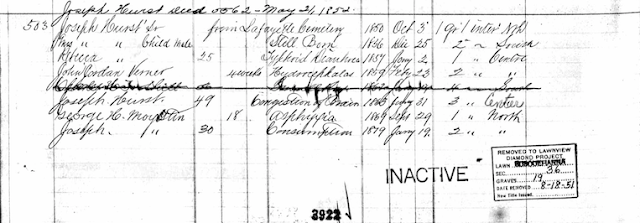 Joseph Hurst Deed 5062 - May 21, 1852.
503 Joseph Hurst Sr from Lafayette Cemetery 1850 Oct 3 1 Gr inter Nth
" " Child Male Still Born 1856 Dec 25 2 " South
Rebeca " 25 Typhoid Diarrhoea 1857 Jany 2 1 " Centre
John Jordan Verner 4 weeks Hydrocephalus 1859 Feby 23 2 " "
Joseph Hurst 49 Congestion of Brain 1863 July 31 3 " Center
George H. 18 Asphyxia 1869 Sept 29 1 " North
Joseph " 30 Consumption 1879 Jany 19 2 " "
INACTIVE
REMOVED TO LAWNVIEW
DIAMOND PROJECT
LAWN SUSQUEHANNA
SEC. 36
GRAVES 19
DATE REMOVED 8-18-51
New Title Issued
3922